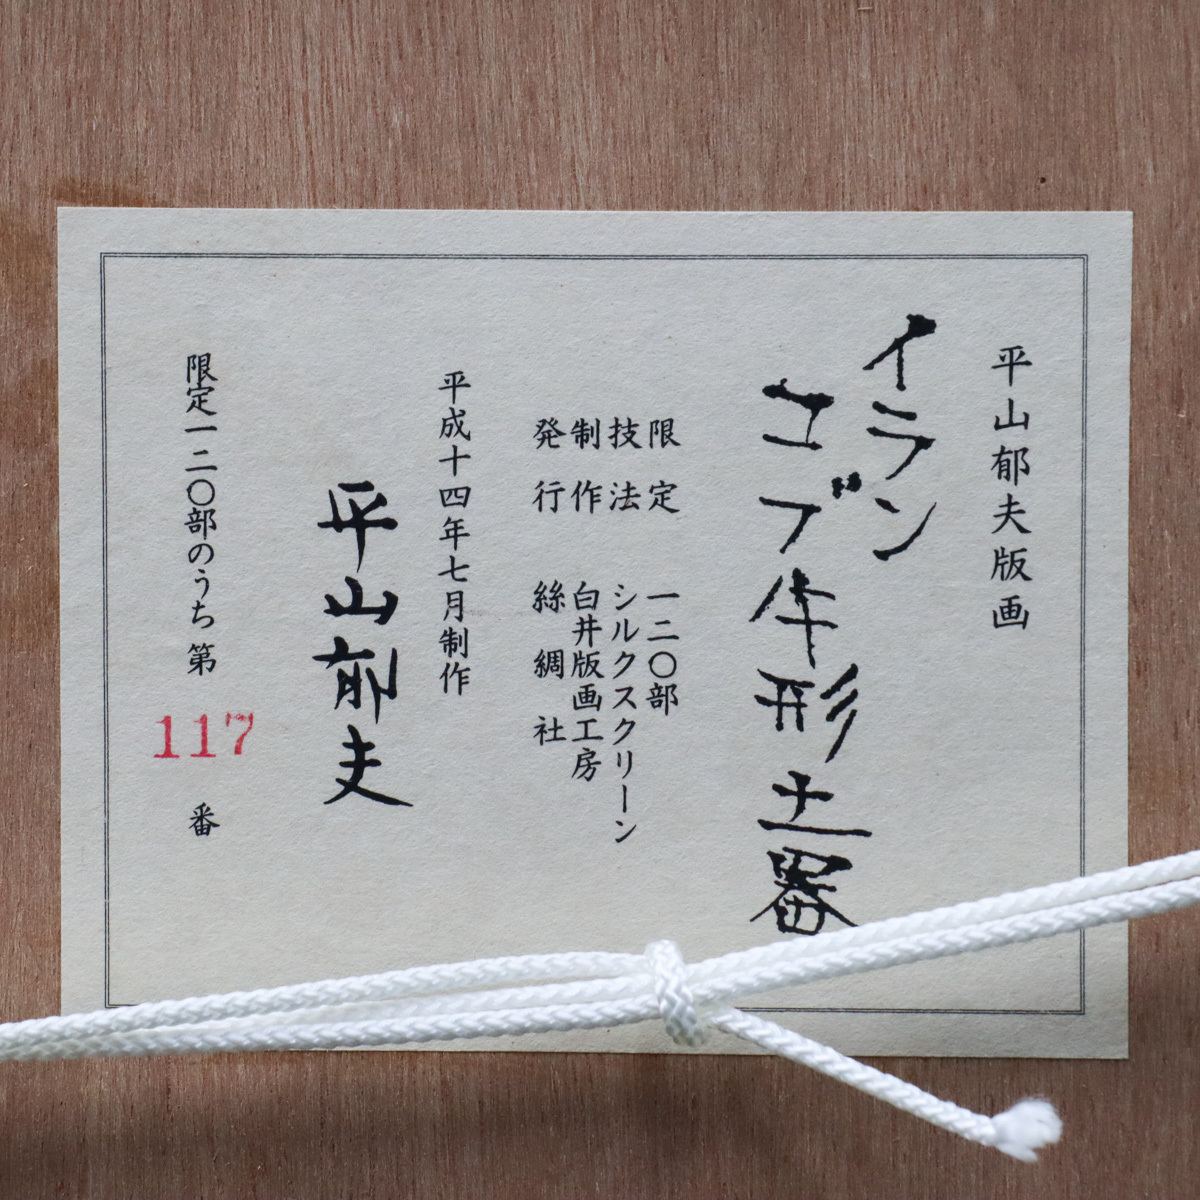 平山郁夫版画
イラン
コブ牛形土器
限定 一二〇部
技法 シルクスクリーン
制作 白井版画工房
発行 絲綢社
平成十四年七月制作
平山郁夫
限定一二〇部のうち 第 117 番